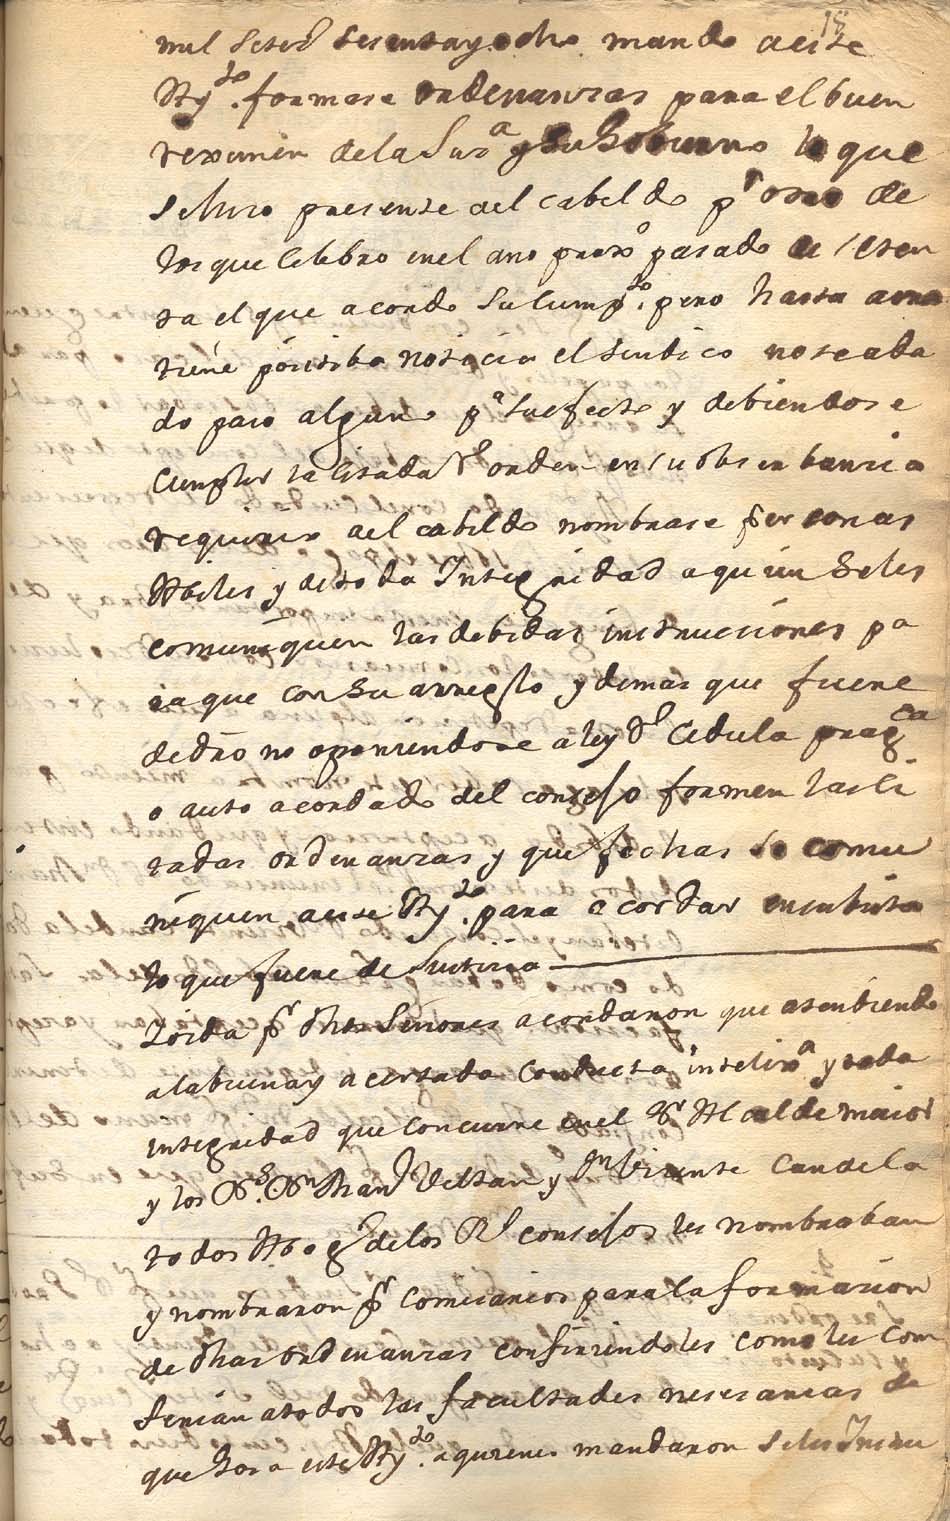 15
mil setes sesenta y ocho mando a este
Ayto. formase ordenanzas para el buen
reximen de la Jura y su Gobierno lo que
se hizo presente a el cabildo pr otro de
los que celebro en el año proxo pasado de seten
ta el que acordo su cumpto. pero hasta aora
tiene positiba noticia el sindico no se a da
do paso alguno pa su efecto y debiendose
cumplir la citada Rl orden en su obserbancia
requiere a el cabildo nombrase personas
Abiles y de toda Integridad a quien se les
comuniquen las debidas instrucciones pa
ra que con su arreglo y demas que fuere
de dro no oponiendose a ley Rl Cedula pragca
o auto acordado del consejo formen las ci
tadas ordenanzas y que fechas se comu
niquen a este Ayto. para acordar en su bista
lo que fuere de Justicia
I oida pr dhos Señores acordaron que atendiendo
a la buena y acertada conducta intelixa y toda
integridad que concurre en el Sr Alcalde maior
y los Dres. Dn Beltran y Dn Vizente Candela
todos Abogs de los Rs consejos les nombraban
y nombraron pr comisarios para la formacion
de dhas ordenanzas confiriendoles como les con
ferian a todos las facultades nesesarias de
que goza este Ayto. a quienes mandaron se les Instru